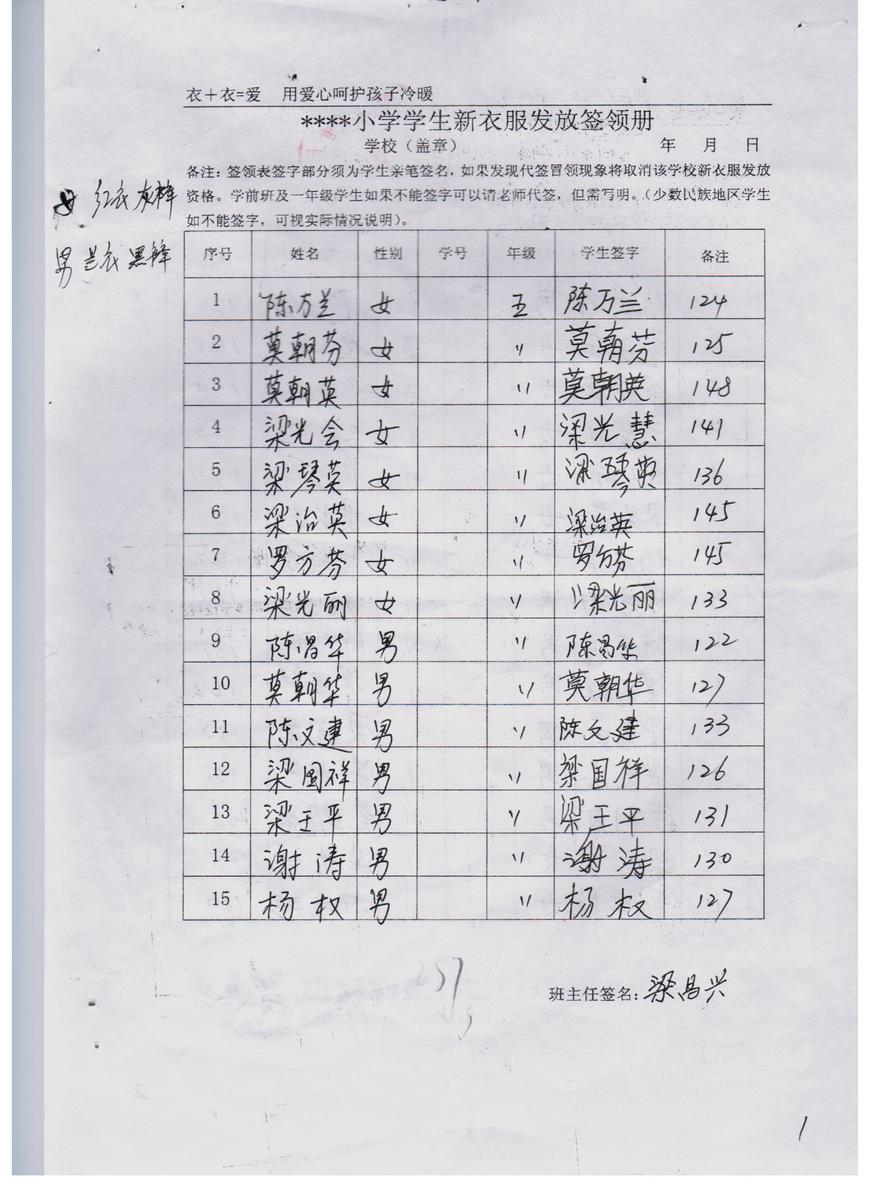 衣＋衣=爱 用爱心呵护孩子冷暖
****小学学生新衣服发放签领册
学校（盖章） 年 月 日
备注：签领表签字部分须为学生亲笔签名，如果发现代签冒领现象将取消该学校新衣服发放
资格。学前班及一年级学生如果不能签字可以请老师代签，但需写明。（少数民族地区学生
如不能签字，可视实际情况说明）。
女 红衣灰裤
男 兰衣黑裤
序号 姓名 性别 学号 年级 学生签字 备注
1 陈万兰 女 五 陈万兰 124
2 莫朝芬 女 〃 莫朝芬 125
3 莫朝英 女 〃 莫朝英 148
4 梁光会 女 〃 梁光慧 141
5 梁琴英 女 〃 梁琴英 136
6 梁治英 女 〃 梁治英 145
7 罗方芬 女 〃 罗方芬 145
8 梁光丽 女 〃 梁光丽 133
9 陈昌华 男 〃 陈昌华 122
10 莫朝华 男 〃 莫朝华 127
11 陈文建 男 〃 陈文建 133
12 梁国祥 男 〃 梁国祥 126
13 梁王平 男 〃 梁王平 131
14 谢涛 男 〃 谢涛 130
15 杨权 男 〃 杨权 127
班主任签名：梁昌兴
1